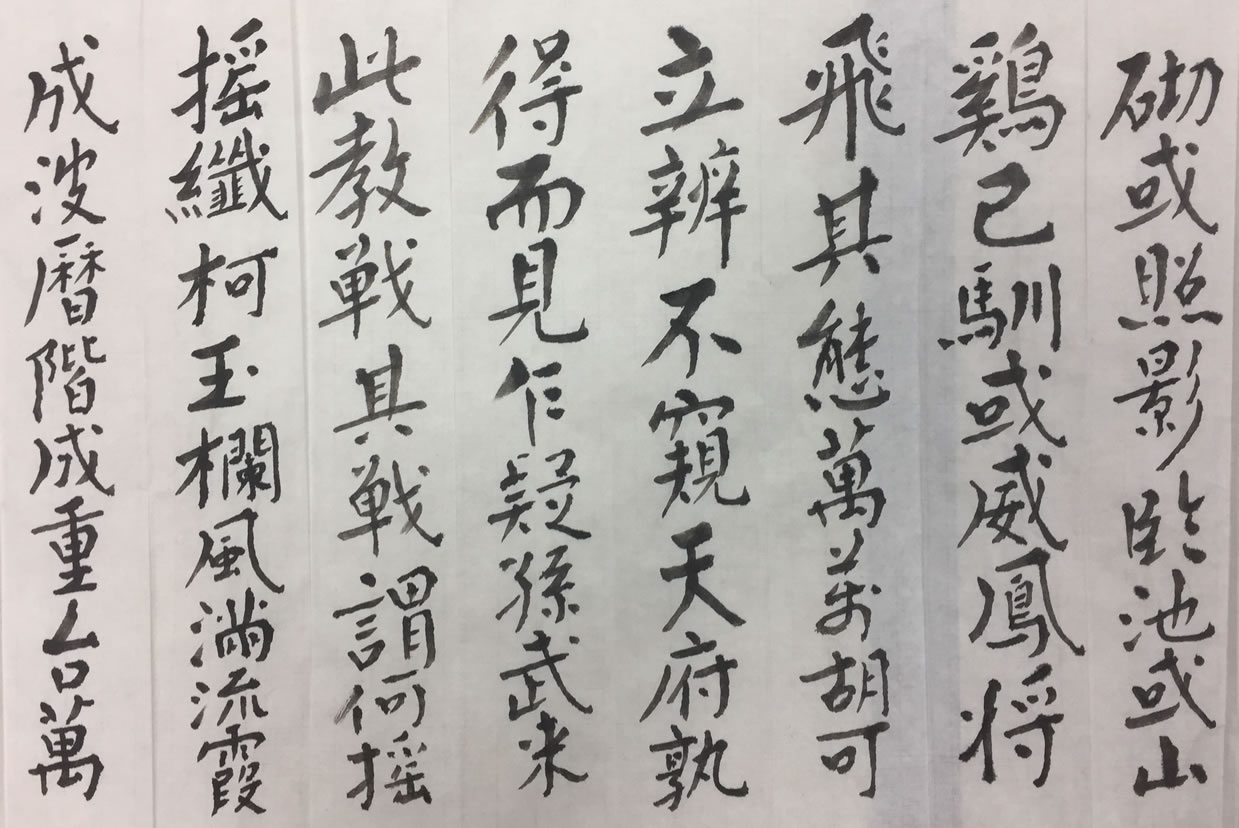 砌或照影臨池或山
鷄已馴或威鳳将
飛其態萬萬胡可
立辨不窺天府孰
得而見乍疑孫武来
此教戦其戦謂何揺
揺纖柯玉欄風満流霞
成波暦階成重台萬